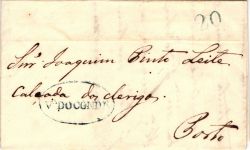 20
Snr Joaquim Pinto Leite
Calçada dos clerigos
Vª DO CONDE
Porto